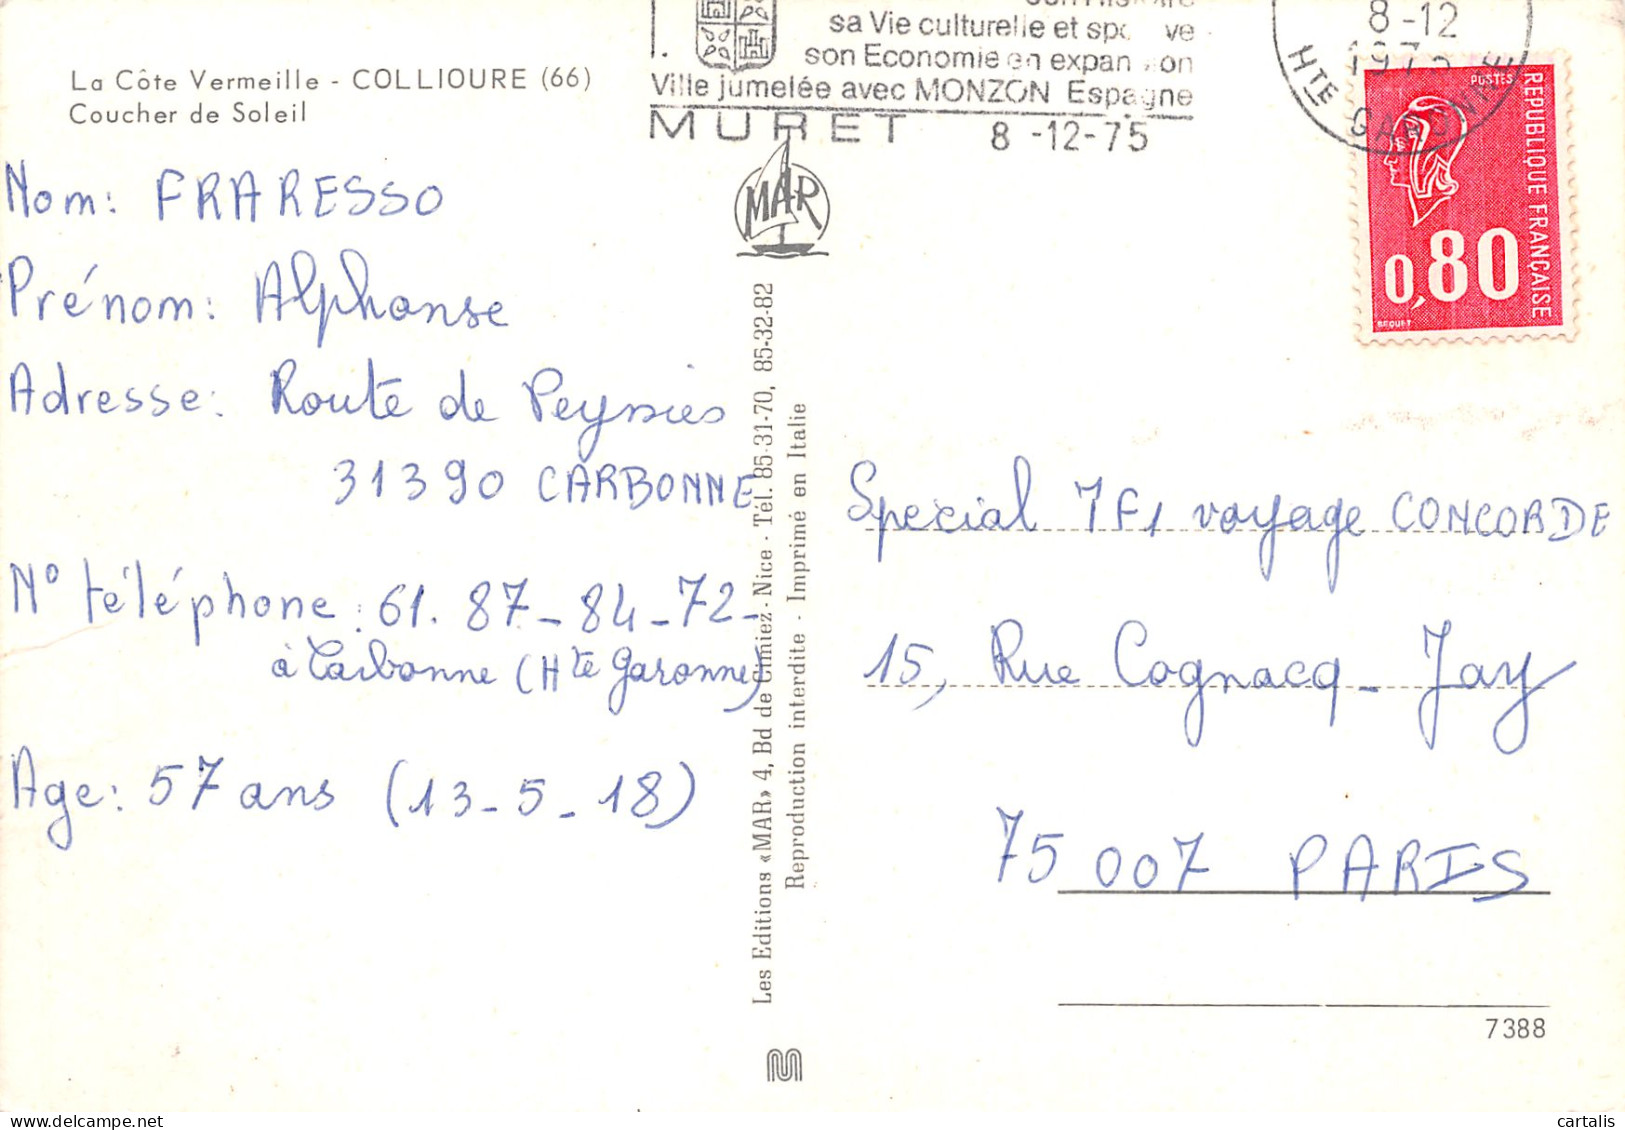 La Côte Vermeille - COLLIOURE (66)
Coucher de Soleil
Nom: FRARESSO
Prénom: Alphonse
Adresse: Route de Peyssies
31390 CARBONNE
N° téléphone: 61. 87-84-72-
à Carbonne (Hte Garonne)
Age: 57 ans (13-5-18)
sa Vie culturelle et
son Economie en expan on
Ville jumelée avec MONZON Espagne
MURET 8 -12-75
MAR
Les Editions «MAR» 4, Bd de Cimiez - Nice - Tél. 85-31-70, 85-32-82
Reproduction interdite - Imprimé en Italie
8-12
1975
HTE GARONNE
POSTES
REPUBLIQUE FRANÇAISE
0,80
BEQUET
Special TF1 voyage CONCORDE
15, Rue Cognacq-Jay
75007 PARIS
7388
M
cartalis